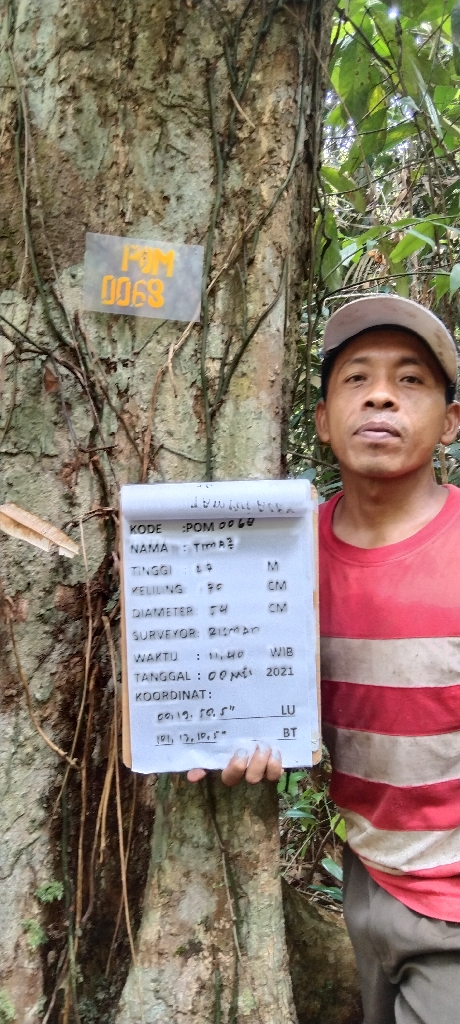 POM
0068
KODE :POM 0068
NAMA :
TINGGI : M
KELILING : CM
DIAMETER : 54 CM
SURVEYOR: BISMAR
WAKTU : 11,40 WIB
TANGGAL : 2021
KOORDINAT:
00,19, 50,5" LU
101, 13, 10,5" BT